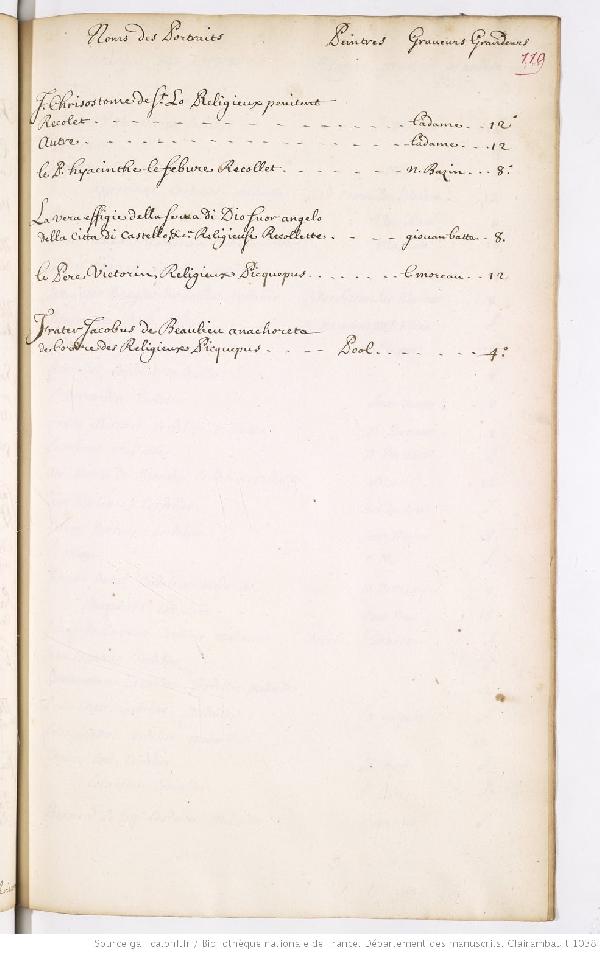 Noms des Portraits Peintres Graveurs Grandeurs
119
J. Chrisostome de St. Lo Religieux penitent
Recolet - - - - - - - - - - Ladame - - 12°
Autre - - - - - - - - - - Ladame - - 12
le P. hyacinthe le febure Recollet - - - - - - n. Bazin - - 8°
La vera effigie della di Dio suor angela
della Citta di Castello &c. Religieuse Recollette - - - - giouan batta - - 8.
le Pere Victorin, Religieux Picquepus - - - - - - - l. moreau - - 12
Frater Jacobus de Beaulieu anachoreta
de l'ordre des Religieux Picquepus - - - - - Pool - - - - - - - 4°
Source gallica.bnf.fr / Bibliothèque nationale de France. Département des manuscrits. Clairambault 1038